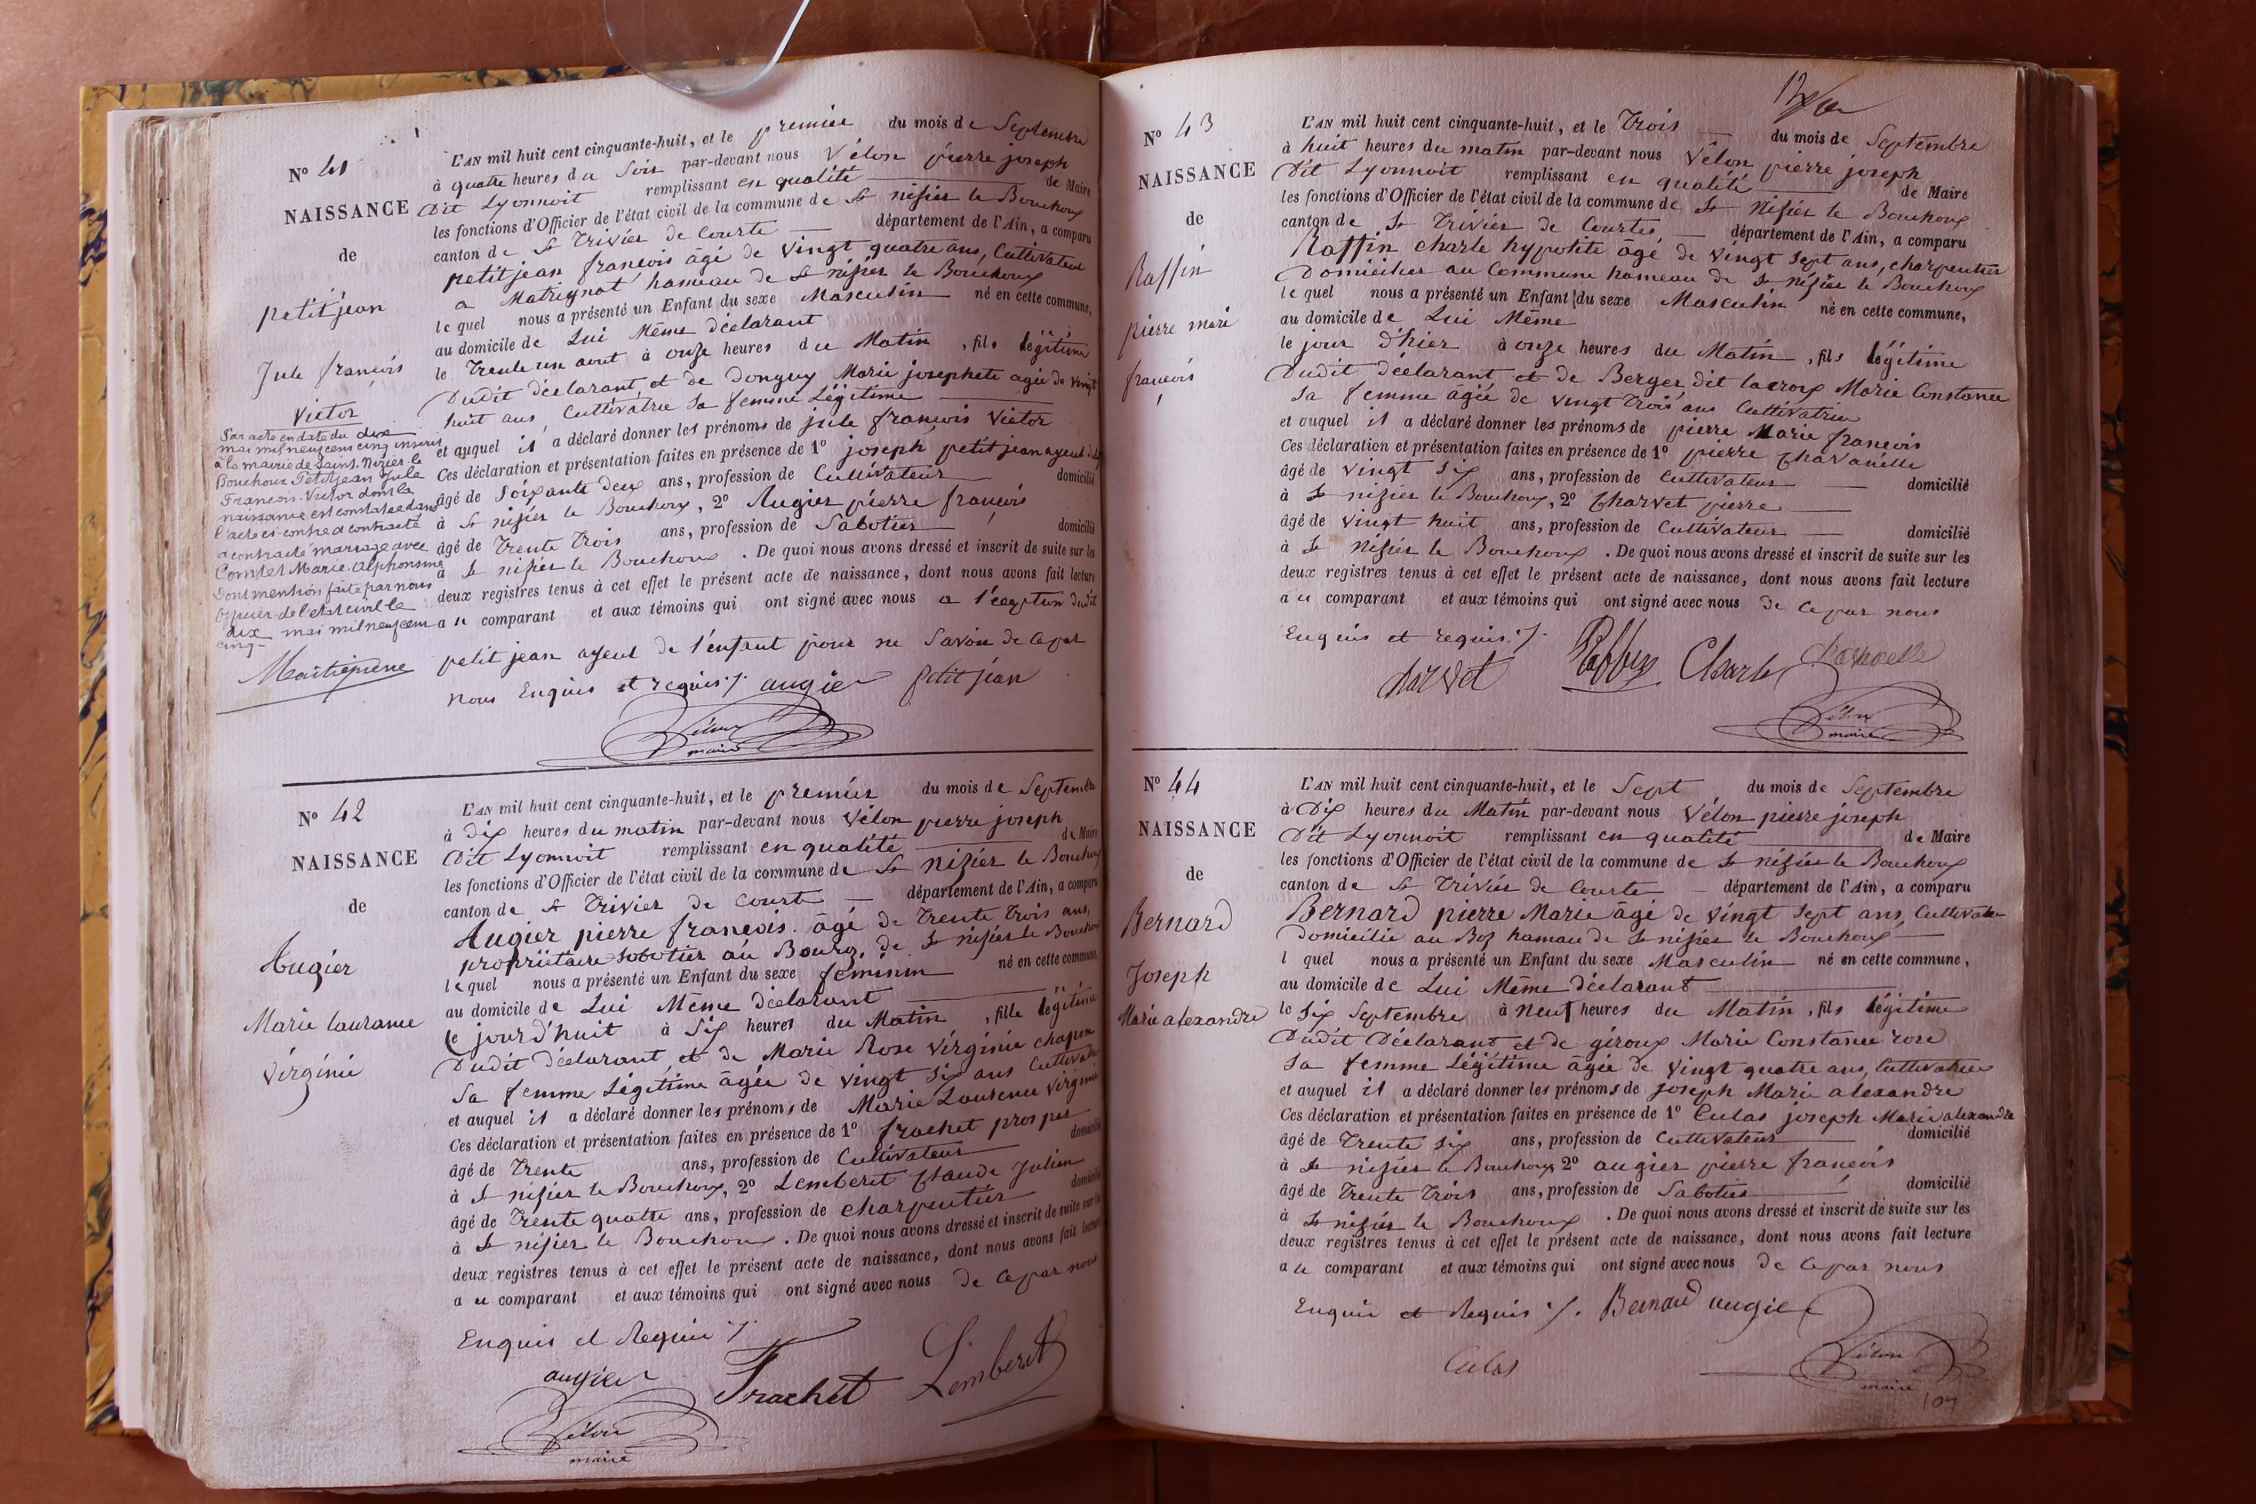 N° 41
NAISSANCE
de
petitjean
Jule françois
Victor
Par acte en date du dix
mai mil neuf cent cinq inscrit
à la mairie de Saint-Nizier-le
Bouchoux Petitjean Jule
François Victor dont la
naissance est constatée dans
l'acte ci-contre a contracté
a contracté mariage avec
Marie Alphonsine
Dont mention faite par nous
officier de l'état civil le
dix mai mil neuf cent
cinq
L'AN mil huit cent cinquante-huit, et le premier du mois de Septembre
à quatre heures du Soir par-devant nous Vélon pierre joseph
Dit Lyonnoit remplissant en qualité de Maire
les fonctions d'Officier de l'état civil de la commune de St nisier le Bouchoux
canton de St Trivier de Courte département de l'Ain, a comparu
petitjean francois âgé de vingt quatre ans, Cultivateur
a Matrignat hameau de St nisier le Bouchoux
lequel nous a présenté un Enfant du sexe Masculin né en cette commune,
au domicile de Lui Même déclarant
le Trente un aout à onze heures du Matin, fils légitime
Dudit déclarant et de Donguy Marie josephete agée de vingt
huit ans, Cultivatrice Sa femme Légitime
et auquel il a déclaré donner les prénoms de jule francois Victor
Ces déclaration et présentation faites en présence de 1° joseph petitjean ayeul
âgé de Soixante deux ans, profession de Cultivateur domicilié
à St nisier le Bouchoux, 2° Augier pierre françois
âgé de Trente Trois ans, profession de Sabotier domicilié
à St nisier le Bouchoux. De quoi nous avons dressé et inscrit de suite sur les
deux registres tenus à cet effet le présent acte de naissance, dont nous avons fait lecture
au comparant et aux témoins qui ont signé avec nous a l'exeption dudit
petit jean ayeul de l'enfant pour ne Savoir de ce par
nous Enquis et requis ./. augier petit jean
Vélon
maire
N° 42
NAISSANCE
de
Augier
Marie laurance
Virginie
L'AN mil huit cent cinquante-huit, et le premier du mois de Septembre
à dix heures du matin par-devant nous Vélon pierre joseph
Dit Lyonnoit remplissant en qualité de Maire
les fonctions d'Officier de l'état civil de la commune de St nisier le Bouchoux
canton de St Trivier de Courte département de l'Ain, a comparu
Augier pierre françois âgé de Trente Trois ans,
propriétaire Sobotier au Bourg, de St nisier le Bouchoux
lequel nous a présenté un Enfant du sexe féminin né en cette commune
au domicile de Lui Même déclarant
le jour d'huit à Six heures du Matin, fille légitime
Dudit déclarant, et de Marie Rose Virginie chapon
Sa femme Légitime âgée de vingt Six ans Cultivatrice
et auquel il a déclaré donner les prénoms de Marie Laurence Virginie
Ces déclaration et présentation faites en présence de 1° frachet prosper
âgé de Trente ans, profession de Cultivateur domicilié
à St nisier le Bouchoux, 2° Lemberet Claude Julien
âgé de Trente quatre ans, profession de charpentier domicilié
à St nisier le Bouchoux. De quoi nous avons dressé et inscrit de suite sur les
deux registres tenus à cet effet le présent acte de naissance, dont nous avons fait lecture
au comparant et aux témoins qui ont signé avec nous de ce par nous
Enquis et Requis ./.
augier Frachet Lemberet
Vélon
maire
N° 43
NAISSANCE
de
Raffin
pierre marie
françois
L'AN mil huit cent cinquante-huit, et le Trois du mois de Septembre
à huit heures du matin par-devant nous Vélon pierre joseph
Dit Lyonnoit remplissant en qualité de Maire
les fonctions d'Officier de l'état civil de la commune de St Nisier le Bouchoux
canton de St Trivier de Courtes département de l'Ain, a comparu
Raffin charle hypolite âgé de vingt Sept ans, charpentier
Domicilier au Commune hameau de St Nisier le Bouchoux
lequel nous a présenté un Enfant du sexe Masculin né en cette commune,
au domicile de Lui Même
le jour d'hier à onze heures du Matin, fils légitime
Dudit déclarant et de Berger dit lacroix Marie Constance
Sa femme âgée de vingt Trois ans Cultivatrice
et auquel il a déclaré donner les prénoms de pierre Marie françois
Ces déclaration et présentation faites en présence de 1° pierre Chavanelle
âgé de vingt Six ans, profession de Cultivateur domicilié
à St nisier le Bouchoux, 2° Charvet pierre
âgé de vingt huit ans, profession de Cultivateur domicilié
à St Nisier le Bouchoux. De quoi nous avons dressé et inscrit de suite sur les
deux registres tenus à cet effet le présent acte de naissance, dont nous avons fait lecture
au comparant et aux témoins qui ont signé avec nous de ce par nous
Enquis et requis ./.
charvet Raffin Charle chavanelle
Vélon
maire
N° 44
NAISSANCE
de
Bernard
Joseph
Marie alexandre
L'AN mil huit cent cinquante-huit, et le Sept du mois de Septembre
à Dix heures du Matin par-devant nous Vélon pierre joseph
Dit Lyonnoit remplissant en qualité de Maire
les fonctions d'Officier de l'état civil de la commune de St nisier le Bouchoux
canton de St Trivier de Courte département de l'Ain, a comparu
Bernard pierre Marie âgé de vingt Sept ans, Cultivateur
domicilié au Boz hamau de St nisier le Bouchoux
l quel nous a présenté un Enfant du sexe Masculin né en cette commune,
au domicile de Lui Même déclarant
le Six Septembre à neuf heures du Matin, fils légitime
Dudit Déclarant et de giroux Marie Constance rose
Sa femme Légitime âgée de vingt quatre ans, Cultivatrice
et auquel il a déclaré donner les prénoms de joseph Marie alexandre
Ces déclaration et présentation faites en présence de 1° Culas joseph Marie alexandre
âgé de Trente Six ans, profession de Cultivateur domicilié
à St nisier le Bouchoux 2° augier pierre françois
âgé de Trente Trois ans, profession de Sabotier domicilié
à St nisier le Bouchoux. De quoi nous avons dressé et inscrit de suite sur les
deux registres tenus à cet effet le présent acte de naissance, dont nous avons fait lecture
au comparant et aux témoins qui ont signé avec nous de ce par nous
Enquis et Requis ./. Bernard augier
Culas
Vélon
maire